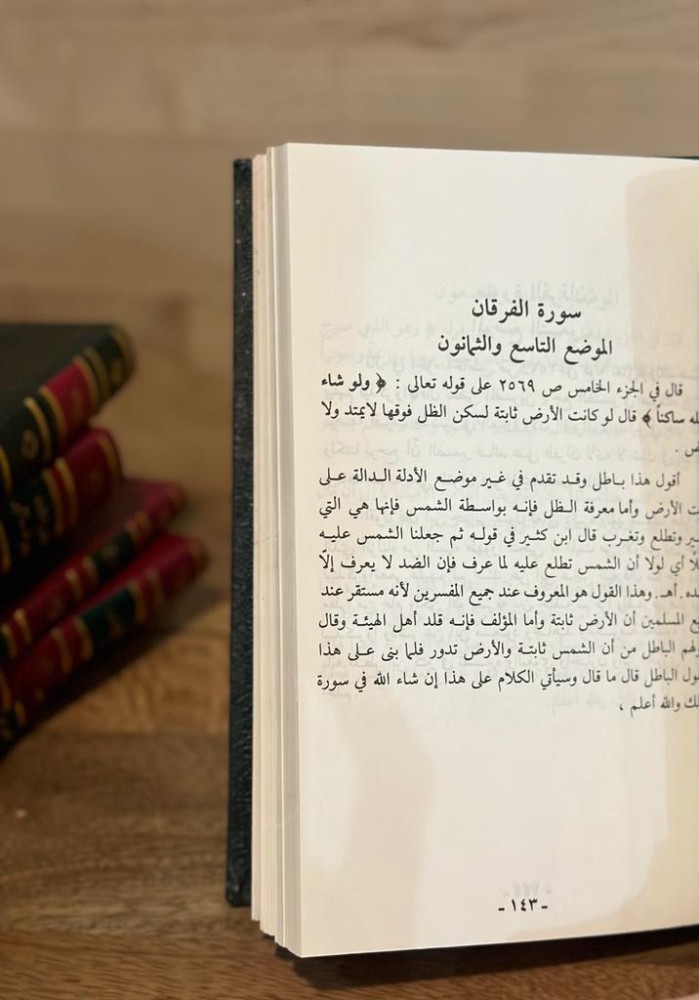 سورة الفرقان
الموضع التاسع والثمانون
قال في الجزء الخامس ص ٢٥٦٩ على قوله تعالى : ﴿ ولو شاء
ساكناً ﴾ قال لو كانت الأرض ثابتة لسكن الظل فوقها لايمتد ولا
أقول هذا باطل وقد تقدم في غير موضع الأدلة الدالة على
الأرض وأما معرفة الظل فإنه بواسطة الشمس فإنها هي التي
وتطلع وتغرب قال ابن كثير في قوله ثم جعلنا الشمس عليه
أي لولا أن الشمس تطلع عليه لما عرف فإن الضد لا يعرف إلّا
أهـ . وهذا القول هو المعروف عند جميع المفسرين لأنه مستقر عند
المسلمين أن الأرض ثابتة وأما المؤلف فإنه قلد أهل الهيئة وقال
الباطل من أن الشمس ثابتة والأرض تدور فلما بنى على هذا
الباطل قال ما قال وسيأتي الكلام على هذا إن شاء الله في سورة
والله أعلم ،
- ١٤٣ -